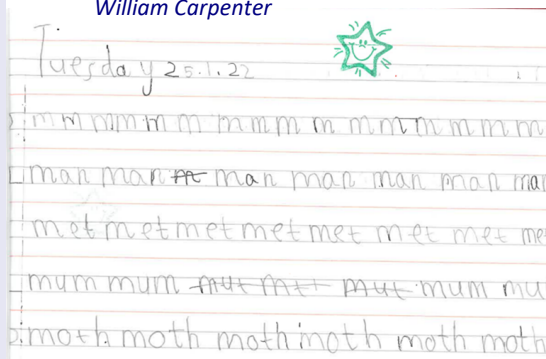 William Carpenter
Tuesday 25.1.22
m m m m m m m m m m m m m m m m
man man man man man man man
met met met met met met met me
mum mum mut met mut mum mu
moth moth moth moth moth moth